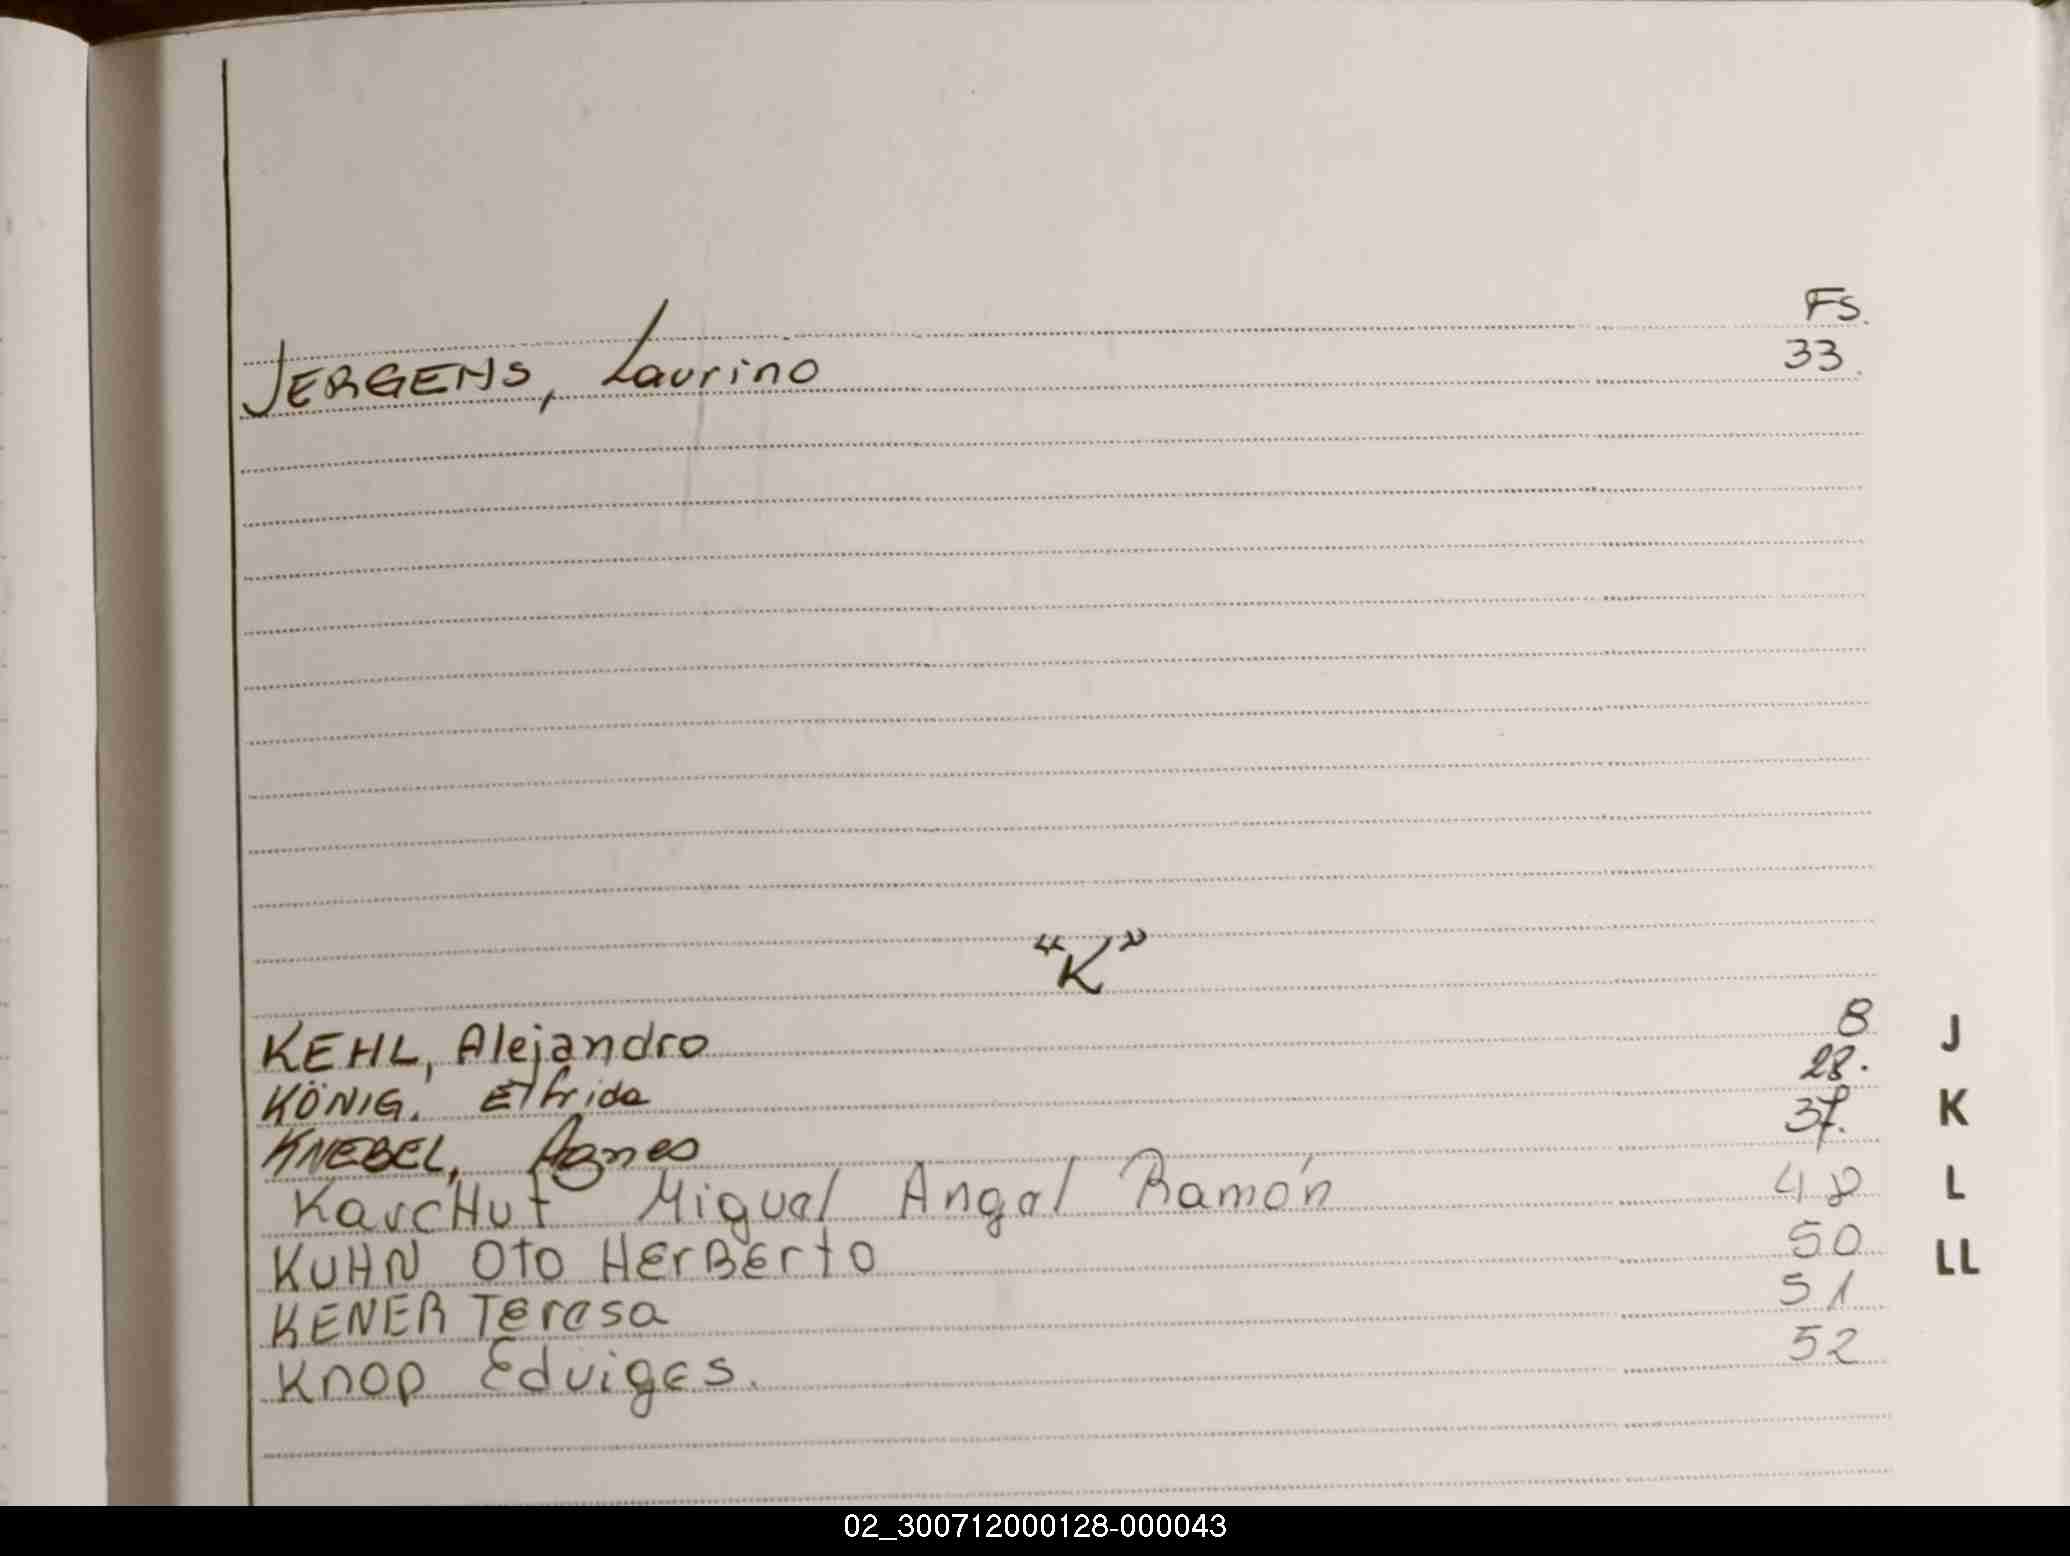 FS.
JERGENS, Laurino 33.
"K"
KEHL, Alejandro 8
KÖNIG. Elfrida 28.
KNEBEL, Agnes 37.
Miguel Angel Ramón 48
KUHN OTO HERBERTO 50
KENER Teresa 51
Knop Eduiges. 52
J
K
L
LL
02_300712000128-000043